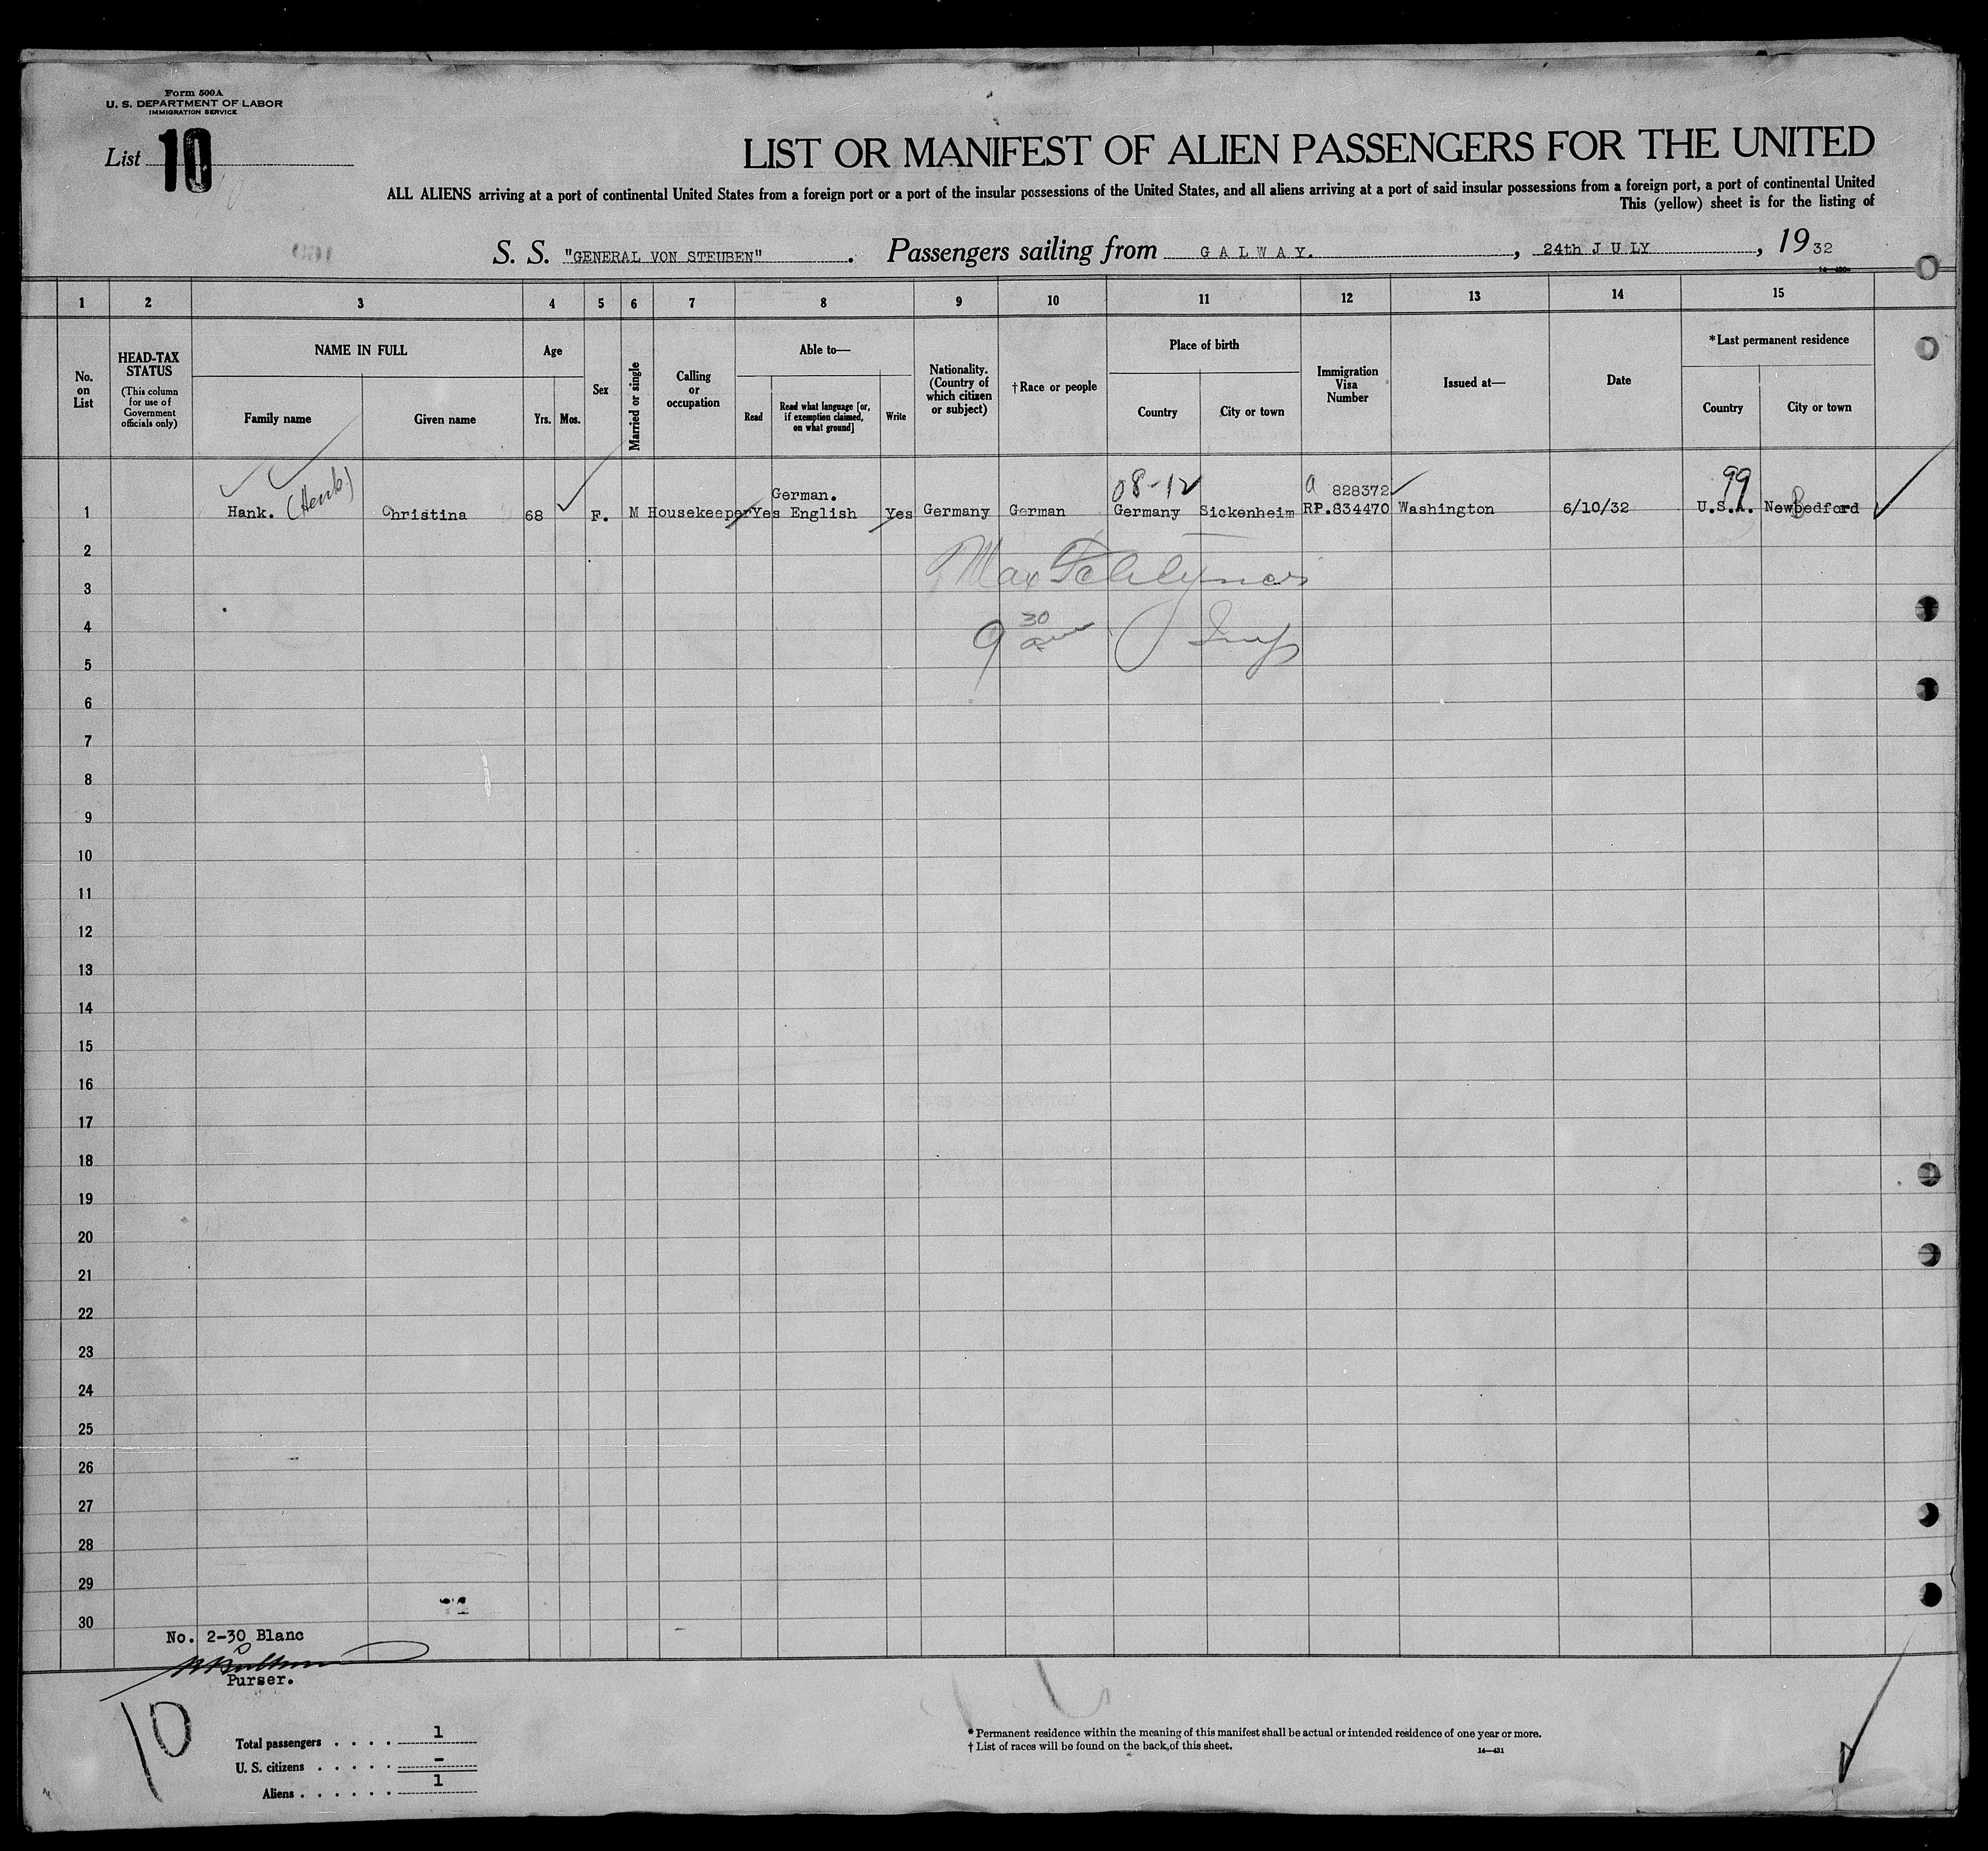 Form 500A
U. S. DEPARTMENT OF LABOR
IMMIGRATION SERVICE
List 10
LIST OR MANIFEST OF ALIEN PASSENGERS FOR THE UNITED
ALL ALIENS arriving at a port of continental United States from a foreign port or a port of the insular possessions of the United States, and all aliens arriving at a port of said insular possessions from a foreign port, a port of continental United
This (yellow) sheet is for the listing of
S. S. "GENERAL VON STEUBEN". Passengers sailing from GALWAY., 24th JULY, 1932
1 2 3 4 5 6 7 8 9 10 11 12 13 14 15
No. on List
HEAD-TAX STATUS
(This column for use of Government officials only)
NAME IN FULL
Family name
Given name
Age
Yrs. Mos.
Sex
Married or single
Calling or occupation
Able to—
Read
Read what language [or, if exemption claimed, on what ground]
Write
Nationality. (Country of which citizen or subject)
† Race or people
Place of birth
Country
City or town
Immigration Visa Number
Issued at—
Date
* Last permanent residence
Country
City or town
08-12 a 828372 99
German.
1 Hank. (Henk) Christina 68 F. M Housekeeper Yes English Yes Germany German Germany Sickenheim RP.834470 Washington 6/10/32 U.S.A. Newbedford
2
3
Max
4
9 30 am
5
6
7
8
9
10
11
12
13
14
15
16
17
18
19
20
21
22
23
24
25
26
27
28
29
30
No. 2-30 Blanc
Purser.
10
Total passengers . . . . 1
U. S. citizens . . . . . -
Aliens . . . . . . 1
* Permanent residence within the meaning of this manifest shall be actual or intended residence of one year or more.
† List of races will be found on the back of this sheet.
14—431